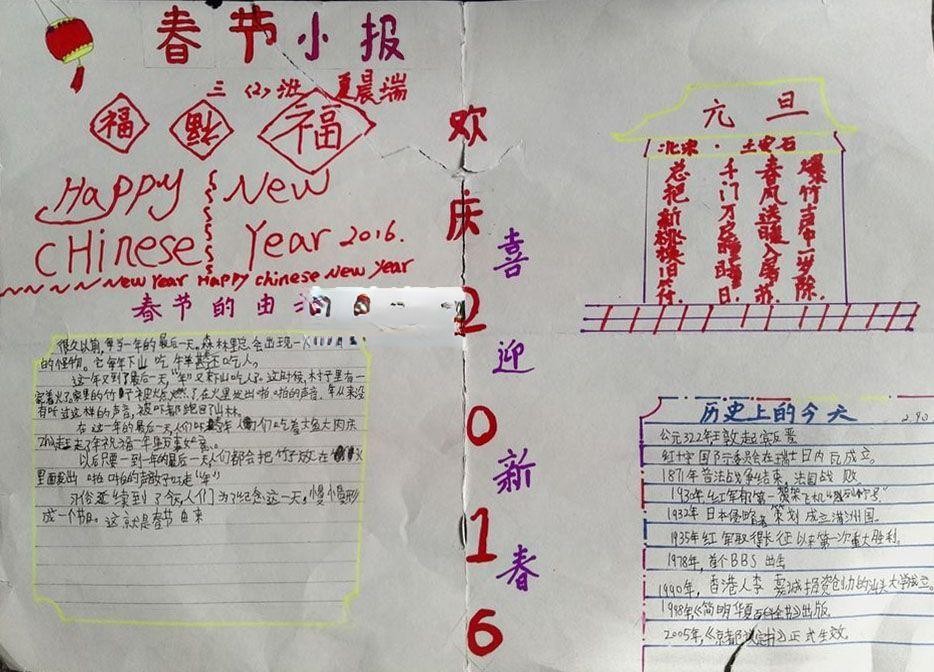 春节小报
三(2)班 夏晨瑞
福 福 福
Happy New
CHinese Year 2016.
New Year Happy chinese New Year
春节的由
很久以前,每当一年的最后一天。森林里总会出现一
的怪物。它每年下山吃牛羊甚还吃人。
这一年又到了最后一天,"年"又来下山吃人了。这时候,村子里有一
家着火了家里的竹子被火燃了在火里发出啪啪的声音,年从来没
有听过这样的声音,被吓都跑回了山林。
在这一年的最后一天人们
以后只要一到一年的最后一天人们都会把竹子放在火
里面发出啪啪的声散子吓走"年"
习俗延续到了今天人们为了纪念这一天。慢慢形
成一个节日。这就是春节由来
欢庆2016
喜迎新春
元旦
北宋·王安石
爆竹声中一岁除,
春风送暖入屠苏,
千门万户曈曈日,
总把新桃换旧符.
历史上的今天
公元322年王敦起兵反晋
红十字国际委员会在瑞士日内瓦成立。
1871年普法战争结束,法国战败.
1930年,红军职第一架飞机"列宁号"
1932年日本侵略者策划成立满洲国。
1935年红军取得长征以来第一次重大胜利。
1978年,首个BBS出
1990年,香港人李嘉诚投资创办的汕头大学成立。
1998年《简明华夏百科全书》出版.
2005年,《京都议定书》正式生效.